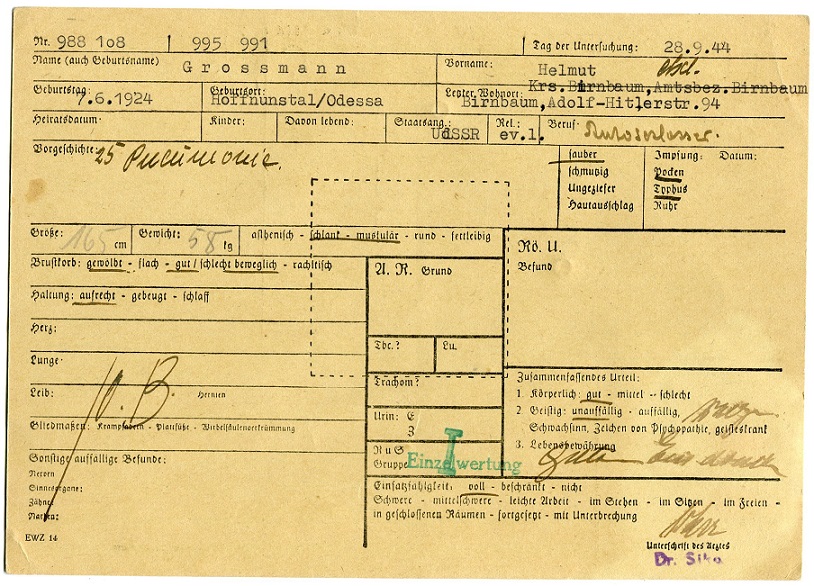 Nr. 988 1o8 995 991 Tag der Untersuchung: 28.9.44
Name (auch Geburtsname) Grossmann Vorname: Helmut
Krs.Birnbaum,Amtsbez.Birnbaum
Geburtstag: 7.6.1924 Geburtsort: Hoffnunstal/Odessa Letzter Wohnort: Birnbaum,Adolf-Hitlerstr.94
Heiratsdatum: Kinder: Davon lebend: Staatsang.: UdSSR Rel.: ev.l. Beruf: Autoschlosser.
Vorgeschichte: 25 Pneumonie.
sauber Impfung: Datum:
schmutzig Pocken
Ungeziefer Typhus
Hautausschlag Ruhr
Größe: 165 cm Gewicht: 58 kg asthenisch - schlank - muskulär - rund - fettleibig
Brustkorb: gewölbt - flach - gut / schlecht beweglich - rachitisch
Haltung: aufrecht - gebeugt - schlaff
Herz:
Lunge:
Leib: Hernien
o. B.
Gliedmaßen: Krampfadern - Plattfüße - Wirbelsäulenverkrümmung
Sonstige auffällige Befunde:
Nerven
Sinnesorgane:
Zähne:
Narben:
EWZ 14
A. R. Grund
Tbc.? Lu.
Trachom?
Urin: E
Z
R u S
Gruppe
I
Einzelwertung
Rö. U.
Befund
Zusammenfassendes Urteil:
1. Körperlich: gut - mittel - schlecht
2. Geistig: unauffällig - auffällig,
Schwachsinn, Zeichen von Psychopathie, geisteskrank
3. Lebensbewährung
Einsatzfähigkeit, voll - beschränkt - nicht
Schwere - mittelschwere - leichte Arbeit - im Stehen - im Sitzen - im Freien -
in geschlossenen Räumen - fortgesetzt - mit Unterbrechung
Unterschrift des Arztes
Dr.